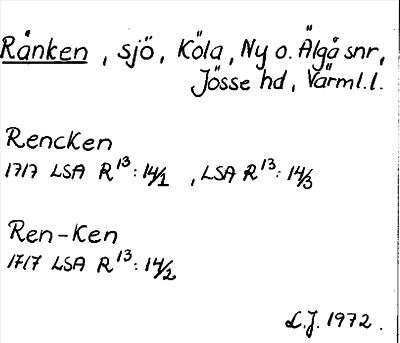 Rånken, sjö, Köla, Ny o. Älgå snr,
Jösse hd, Värml.l.
Rencken
1717 LSA R13: 14/1, LSA R13: 14/3
Ren-Ken
1717 LSA R13: 14/2
L.J. 1972.